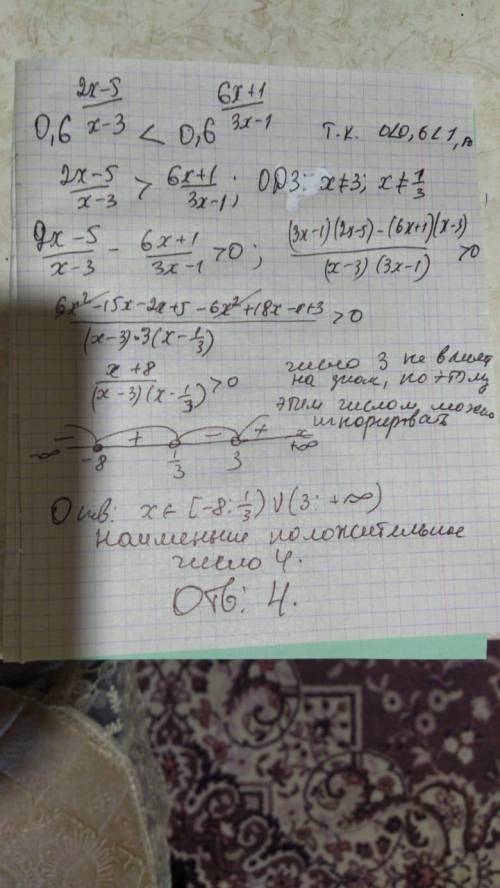 0,6^((2x-5)/(x-3)) < 0,6^((6x+1)/(3x-1)) т.к. 0<0,6<1,
(2x-5)/(x-3) > (6x+1)/(3x-1); ОДЗ: x≠3; x≠1/3
(2x-5)/(x-3) - (6x+1)/(3x-1) >0; ((3x-1)(2x-5)-(6x+1)(x-3))/((x-3)(3x-1)) >0
(6x²-15x-2x+5-6x²+18x-x+3)/((x-3)·3(x-1/3)) >0
(x+8)/((x-3)(x-1/3)) >0 число 3 не влияет
на знак, поэтому
этим числом можно
игнорировать
- + - + x
-∞ -8 1/3 3 +∞
Отв: x∈ [-8; 1/3) ∪ (3; +∞)
наименьшие положительное
число 4.
Отв: 4.